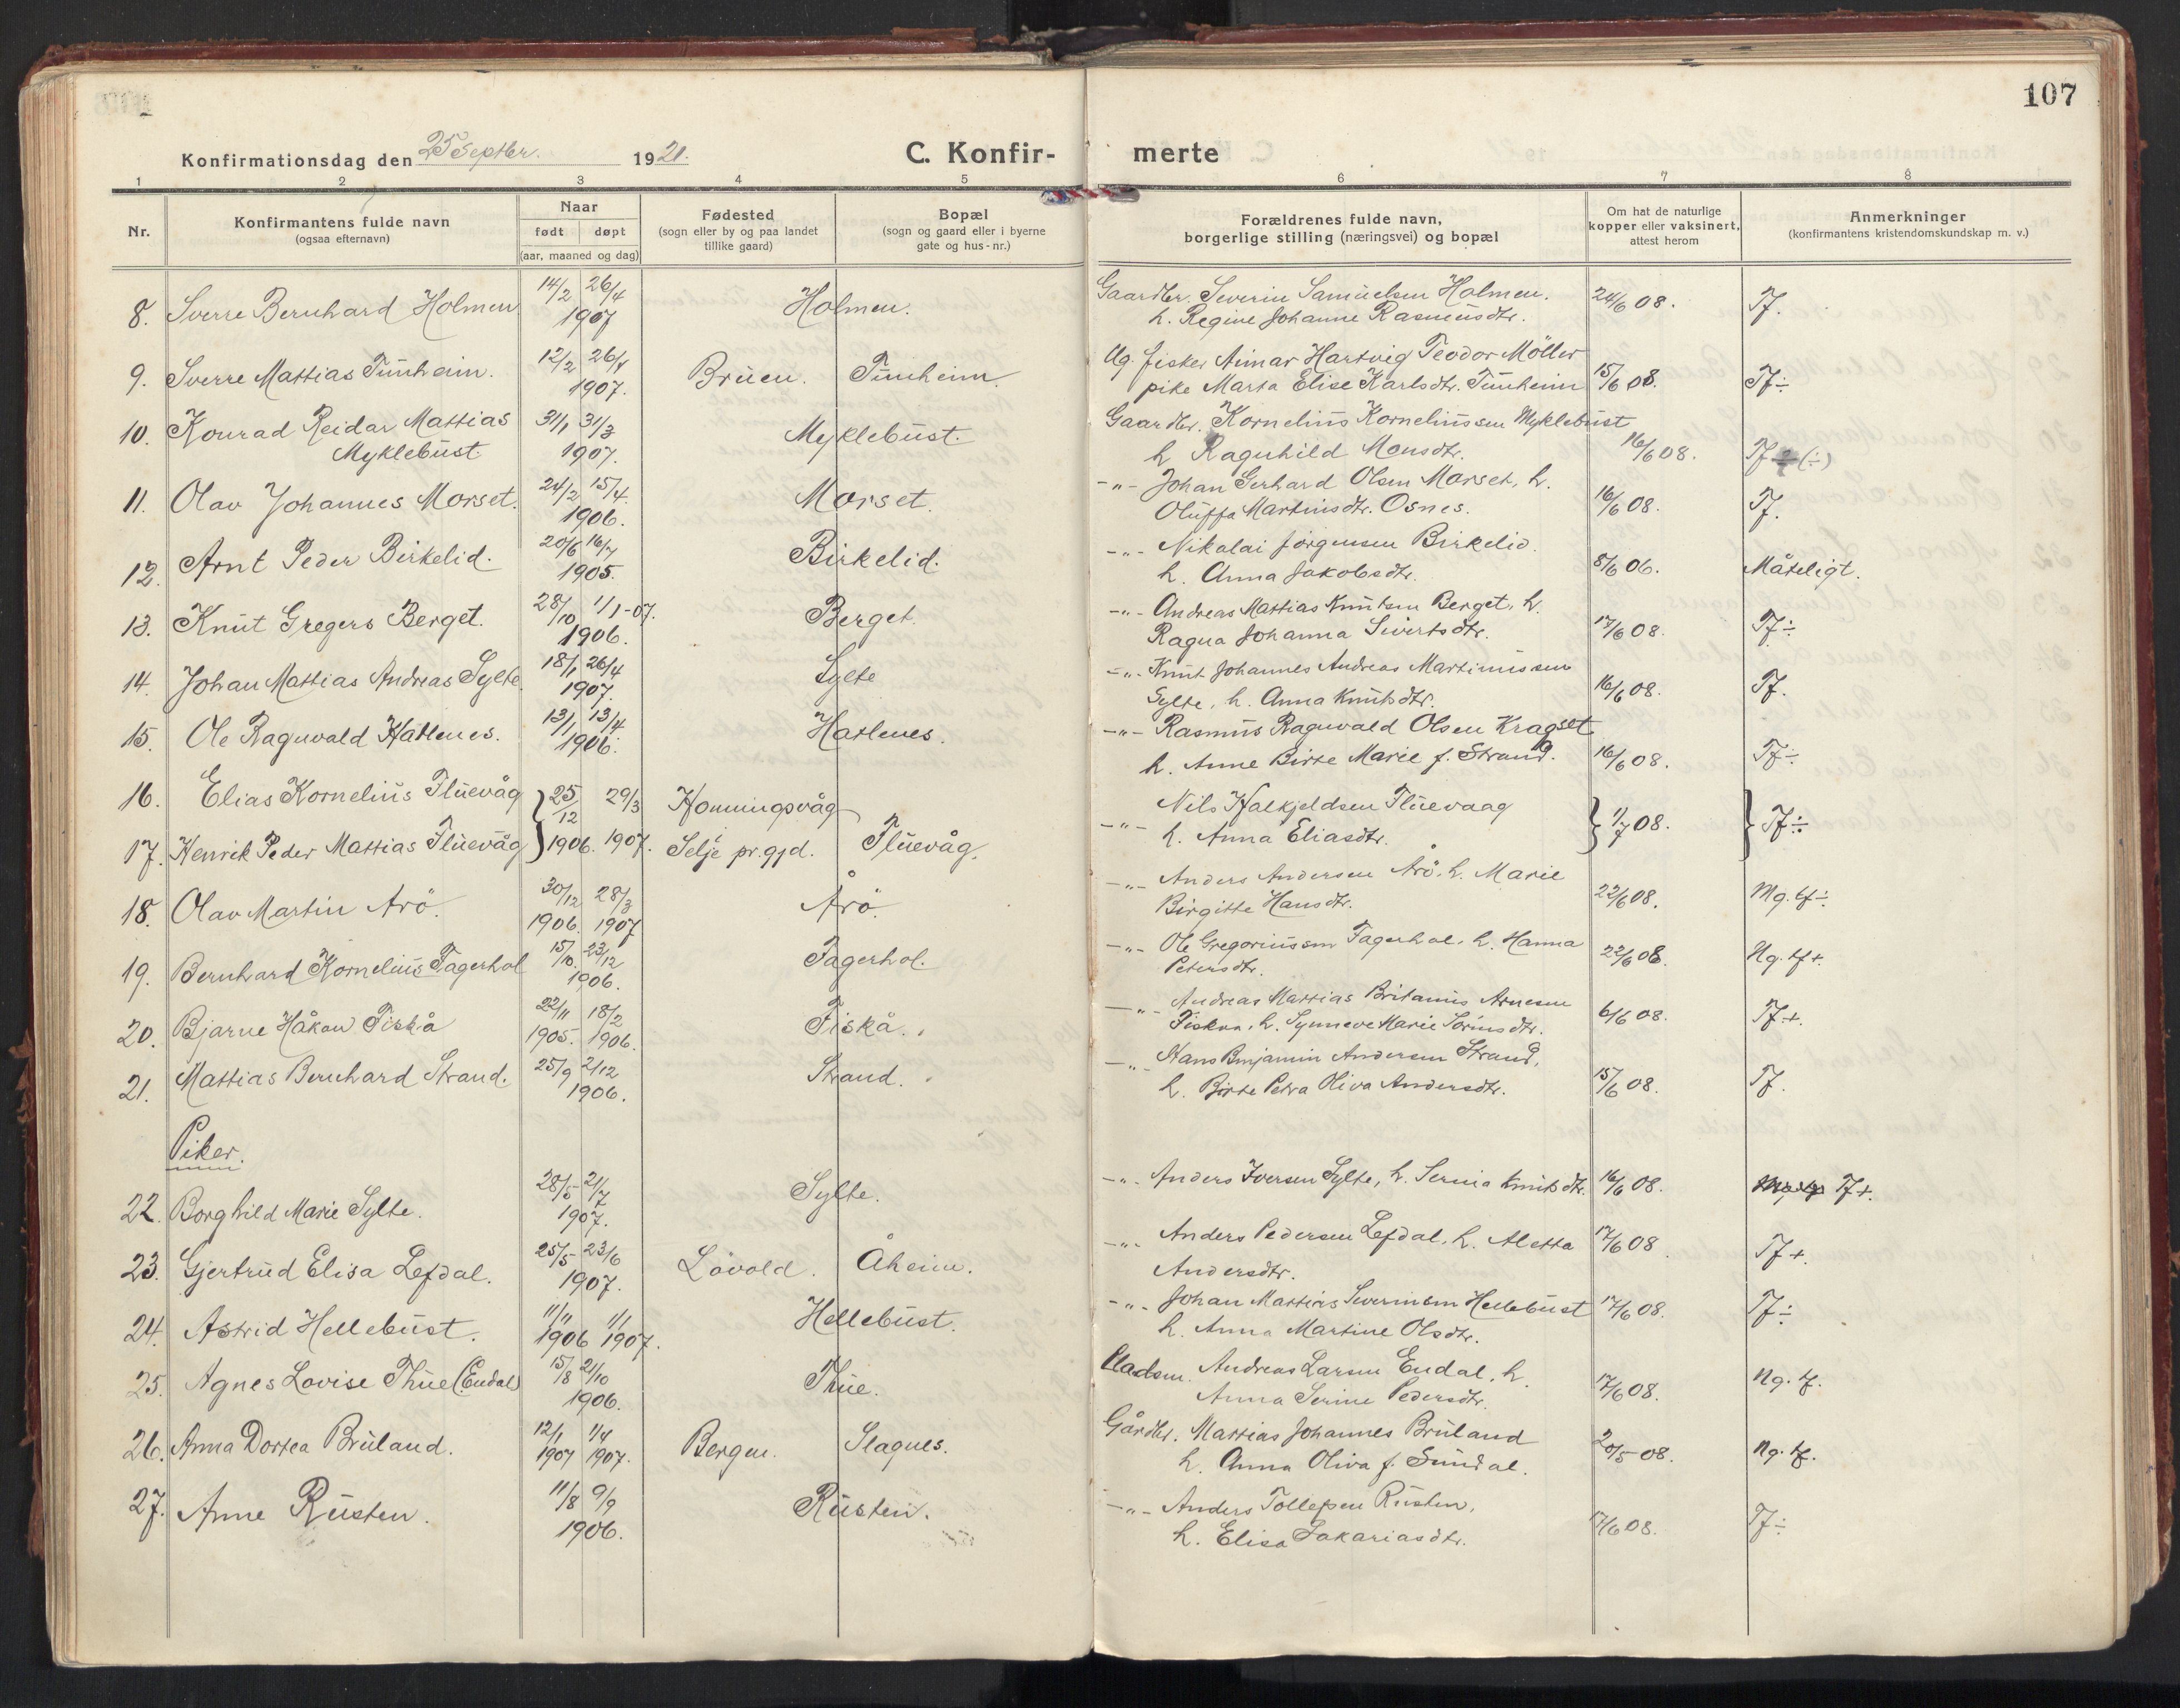 107
Konfirmationsdag den 25 Septbr. 1921.
C. Konfirmerte
1 2 3 4 5 6 7 8
Nr.
Konfirmantens fulde navn
(ogsaa efternavn)
Naar
født døpt
(aar, maaned og dag)
Fødested
(sogn eller by og paa landet
tillike gaard)
Bopæl
(sogn og gaard eller i byerne
gate og hus-nr.)
Forældrenes fulde navn,
borgerlige stilling (næringsvei) og bopæl
Om hat de naturlige
kopper eller vaksinert,
attest herom
Anmerkninger
(konfirmantens kristendomskundskap m. v.)
8. Sverre Bernhard Holmen 14/2 26/4 1907 Holmen. Gaardbr. Severin Samuelsen Holmen. 24/6 08. Tf.
h. Regine Johanne Rasmusdtr.
9. Sverre Mattias Tunheim. 12/2 26/4 1907. Bruen. Tunheim. Ug. fisker Aimar Hartvig Teodor Möller
pike Marta Elise Karlsdtr. Tunheim 15/6 08. Tf÷
10. Konrad Reidar Mattias 31/1 31/3 Myklebust. Gaardbr. Kornelius Korneliussen Myklebust
Myklebust 1907. h Ragnhild Monsdtr. 16/6 08. Tf (÷)
11. Olav Johannes Morset. 24/2 15/4 1906. Morset. -"- Johan Gerhard Olsen Morset, h.
Oluffa Martinsdtr. Osnes. 16/6 08. Tf.
12. Arnt Peder Birkelid. 20/6 16/7 1905. Birkelid. -"- Nikolai Jörgensen Birkelid.
h. Anna Jakobsdtr. 8/6 06. Måteligt.
13. Knut Gregers Berget. 28/10 1/1-07. 1906. Berget. -"- Andreas Mattias Knutsen Berget, h.
Ragna Johanna Sivertsdtr. 17/6 08. Tf÷
14. Johan Mattias Andreas Sylte. 18/1 26/4 1907. Sylte -"- Knut Johannes Andreas Martinussen
Sylte, h. Anna Knutsdtr. 16/6 08. Tf.
15. Ole Ragnvald Hatlenes. 13/1 13/4 1906. Hatlenes. -"- Rasmus Ragnvald Olsen Kragset
h. Anne Birte Marie f. Strand. 16/6 08. Tf÷
16. Elias Kornelius Fluevåg } 25/12 29/3 Honningsvåg Nils Halkjeldsen Fluevaag
17. Henrik Peder Mattias Fluevåg } 1906. 1907. i Selje pr.gjd. Fluevåg. -"- h. Anna Eliasdtr. } 1/7 08. } Tf÷
18. Olav Martin Arö. 30/12 28/3 1906. 1907 Årö. -"- Anders Andersen Årö. h. Marie
Birgitte Hansdtr. 22/6 08. Mg. tf÷
19. Bernhard Kornelius Fagerhol 15/10. 23/12 1906. Fagerhol. -"- Ole Gregoriussen Fagerhol. h. Hanna
Petersdtr. 22/6 08. Ng. tf+.
20. Bjarne Håkon Fiskå 22/11 18/2 1905. 1906. Fiskå. -"- Andreas Mattias Britanus Arnesen
Fiskaa, h. Synneve Marie Sörinsdtr. 6/6 08. Tf+.
21. Mattias Bernhard Strand. 25/9 2/12 1906. Strand. -"- Hans Benjamin Andersen Strand,
h. Birte Petra Oliva Andersdtr. 15/6 08. Tf.
Piker.
22. Borghild Marie Sylte. 28/5 21/7 1907. Sylte. -"- Anders Iversen Sylte, h. Serina Knutsdtr. 16/6 08. Tf+.
23. Gjertrud Elisa Lefdal. 25/5 23/6 1907. Lövold. Åheim. -"- Anders Pedersen Lefdal, h. Aletta 17/6 08. Tf+
Andersdtr.
24. Astrid Hellebust. 11/11 1/1 1906 1907. Hellebust. -"- Johan Mattias Severinsen Hellebust 17/6 08. Tf÷
h. Anna Martine Olsdtr.
25. Agnes Lovise Thue (Endal) 15/8 21/10 1906. Thue. Pladsm. Andreas Larsen Endal, h.
Anna Serine Pedersdtr. 17/6 08. Ng. tf.
26. Anna Dortea Bruland. 12/1 1/4 1907 1907. Bergen. Slagnes. Gårdbr. Mattias Johannes Bruland
h. Anna Oliva f. Sundal. 20/5-08. Ng. tf.
27. Anne Rusten. 11/8 9/9 1906. Rusten. -"- Anders Tollefsen Rusten,
h. Elisa Sakariasdtr. 17/6 08. Tf÷